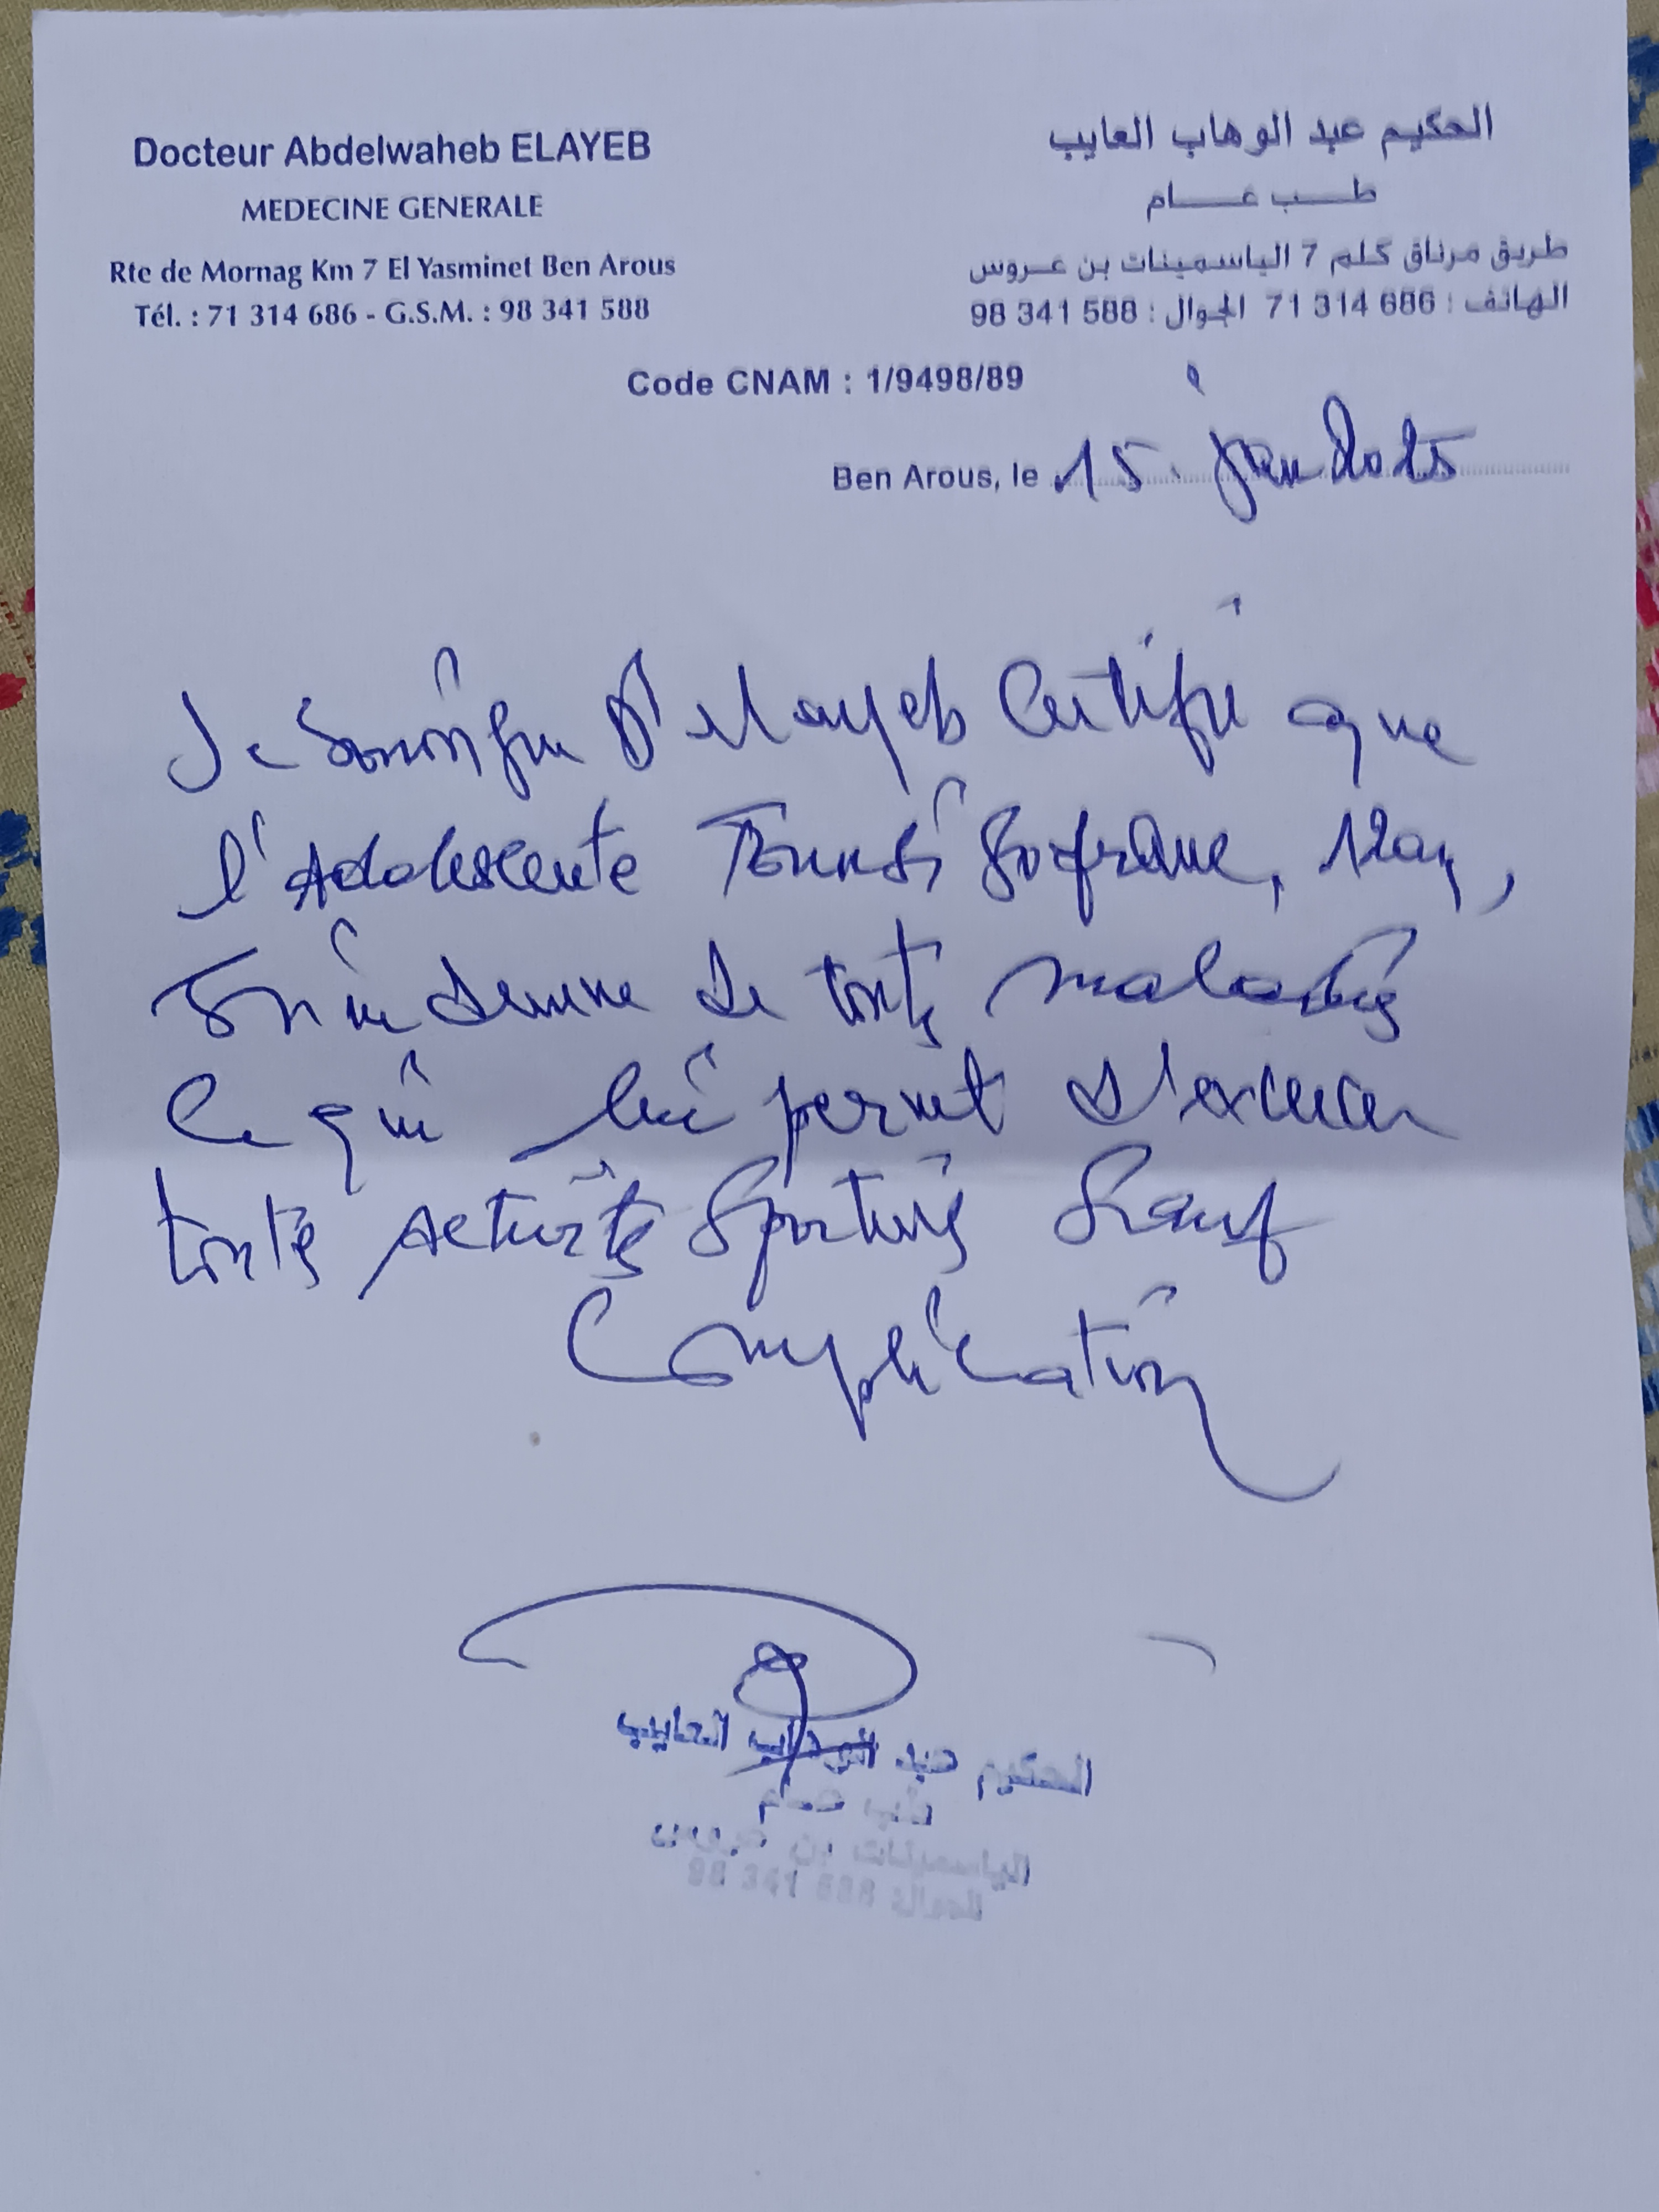 Docteur Abdelwaheb ELAYEB
MEDECINE GENERALE
Rte de Mornag Km 7 El Yasminet Ben Arous
Tél. : 71 314 686 - G.S.M. : 98 341 588
الحكيم عبد الوهاب العايب
طب عام
طريق مرناق كلم 7 الياسمينات بن عروس
الهاتف : 71 314 686 الجوال : 98 341 588
Code CNAM : 1/9498/89
Ben Arous, le 15. Jan 2025
Je soussigné Dr elayeb Certifie que
l'Adolescente Tounsi, 12 ans,
indemne de toutes maladies
Ce qui lui permet d'exercer
toutes activités Sportives Sauf
Complication
الحكيم عبد الوهاب العايب
طب عام